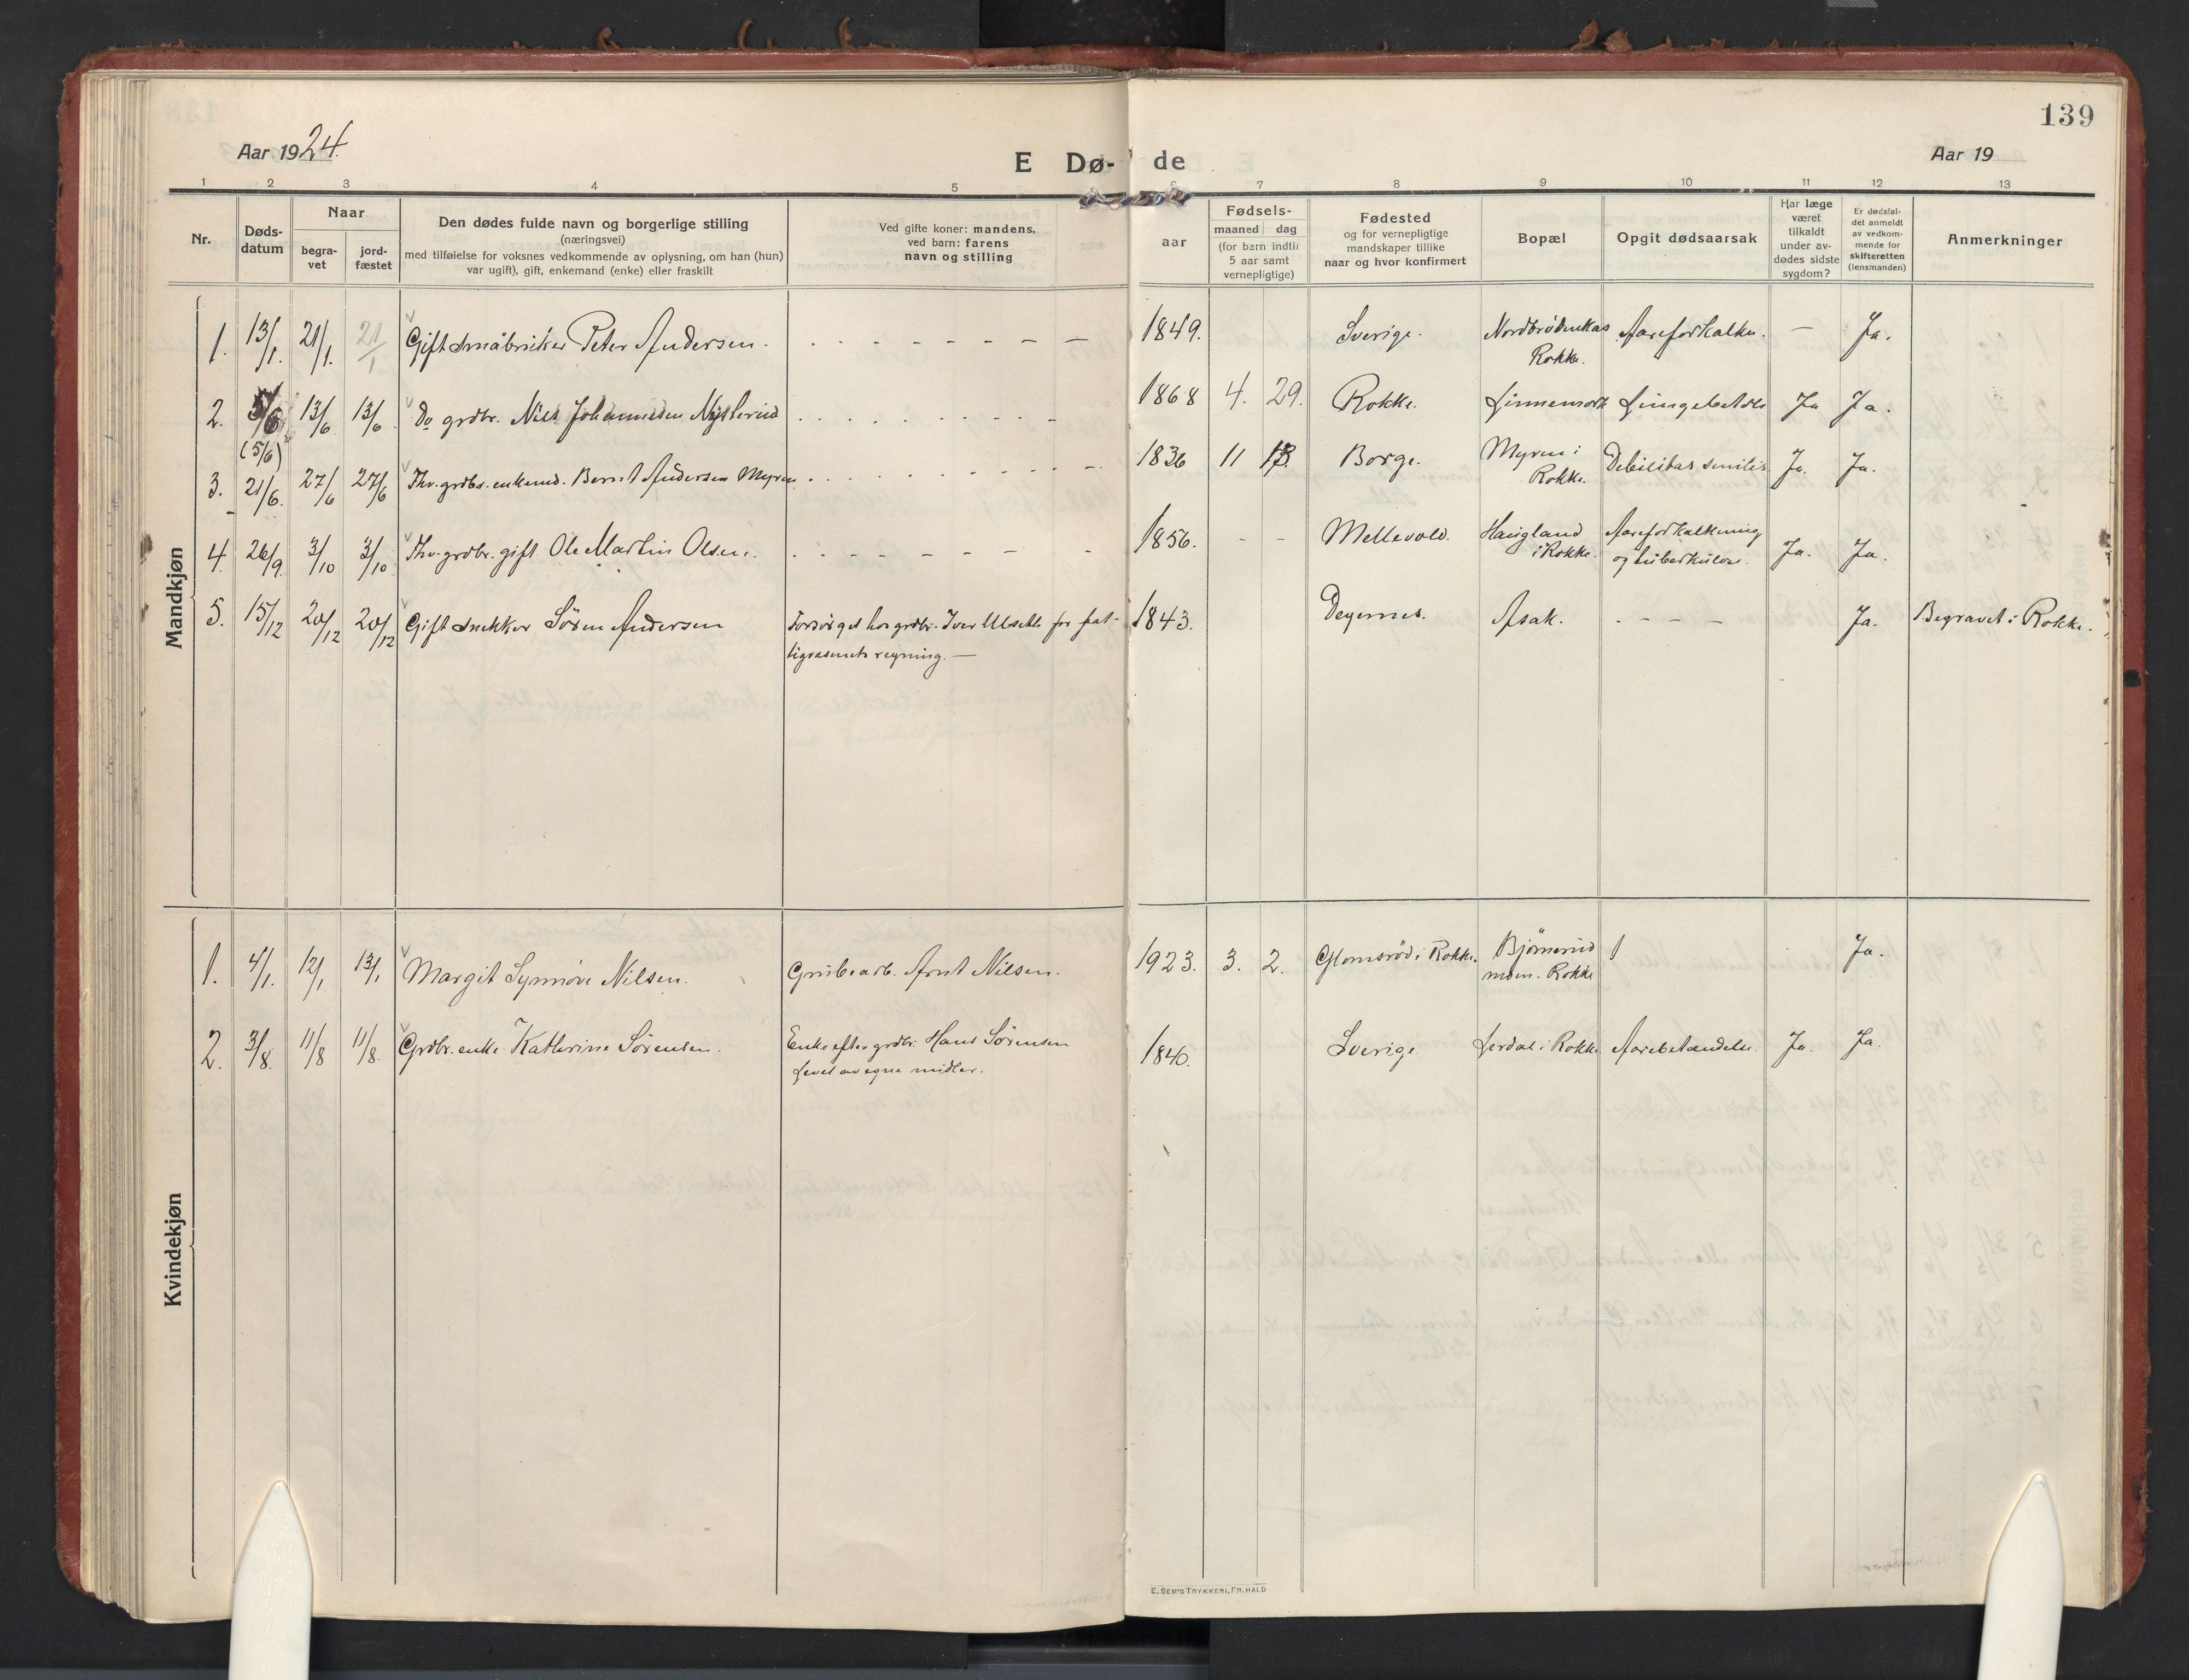 139
Aar 1924.
E Dø- de
Aar 19
1 2 3 4 5 6 7 8 9 10 11 12 13
Nr.
Døds-
datum
Naar
begra-
vet
jord-
fæstet
Den dødes fulde navn og borgerlige stilling
(næringsvei)
med tilføielse for voksnes vedkommende av oplysning, om han (hun)
var ugift), gift, enkemand (enke) eller fraskilt
Ved gifte koner: mandens,
ved barn: farens
navn og stilling
aar
Fødsels-
maaned dag
(for barn indtil
5 aar samt
vernepligtige)
Fødested
og for vernepligtige
mandskaper tillike
naar og hvor konfirmert
Bopæl
Opgit dødsaarsak
Har læge
været
tilkaldt
under av-
dødes sidste
sygdom?
Er dødsfal-
det anmeldt
av vedkom-
mende for
skifteretten
(lensmanden)
Anmerkninger
Mandkjøn
1. 13/1. 21/1. 21/1 Gift småbruker Peter Andersen. 1849. Sverige. Aareforkalkn. — Ja.
Rokke.
2. 5/6 13/6 13/6 Do grdbr. Nils Johannesen 1868 4. 29. Rokke. Lungebetd. Ja Ja.
(5/6)
3. 21/6. 27/6 27/6 Fhv. grdbr. enkemd. Bernt Andersen Myren 1836 11 13. Borge. Myren i Debilitas senilis Ja. Ja.
Rokke.
4. 26/9 3/10 3/10 Fhv. grdbr. gift. Ole Martin Olsen. 1856. - - Mellevold. Haugland Aareforkalkning
i Rokke. og tuberkulose. Ja. Ja.
5. 15/12 20/12 20/12 Gift snekker Søren Andersen Forsørget hos grdbr. Iver Ulsekk for fat- 1843. Degernes. Asak. - - - - Ja. Begravet i Rokke.
tigvæsenets regning. —
Kvindekjøn
1. 4/1. 12/1 13/1 Margit Synnøve Nilsen. Grubearb. Arnt Nilsen. 1923. 3. 2. Glomsrød i Rokke. Bjørnerud Ja.
Rokke
2. 3/8. 11/8 11/8. Grdbr. enke Kathrine Sørensen. Enke efter grdbr. Hans Sørensen 1840. Sverige Lerdal i Rokke. Aarebetændelse. Ja. Ja.
Levet av egne midler.
E. SEM'S TRYKKERI, FR.HALD